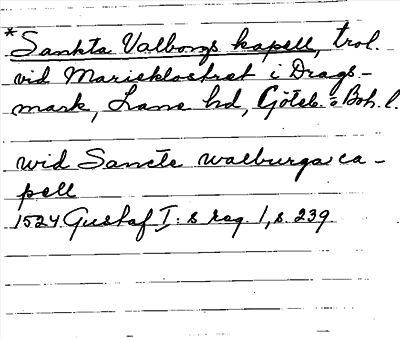 *Sankta Valborgs kapell, trol.
vid Marieklostret i Drags-
mark, Lane hd, Göteb. o Boh. l.
wid Sancte walburga ca-
pell
1524 Gustaf I:s reg. 1, s. 239